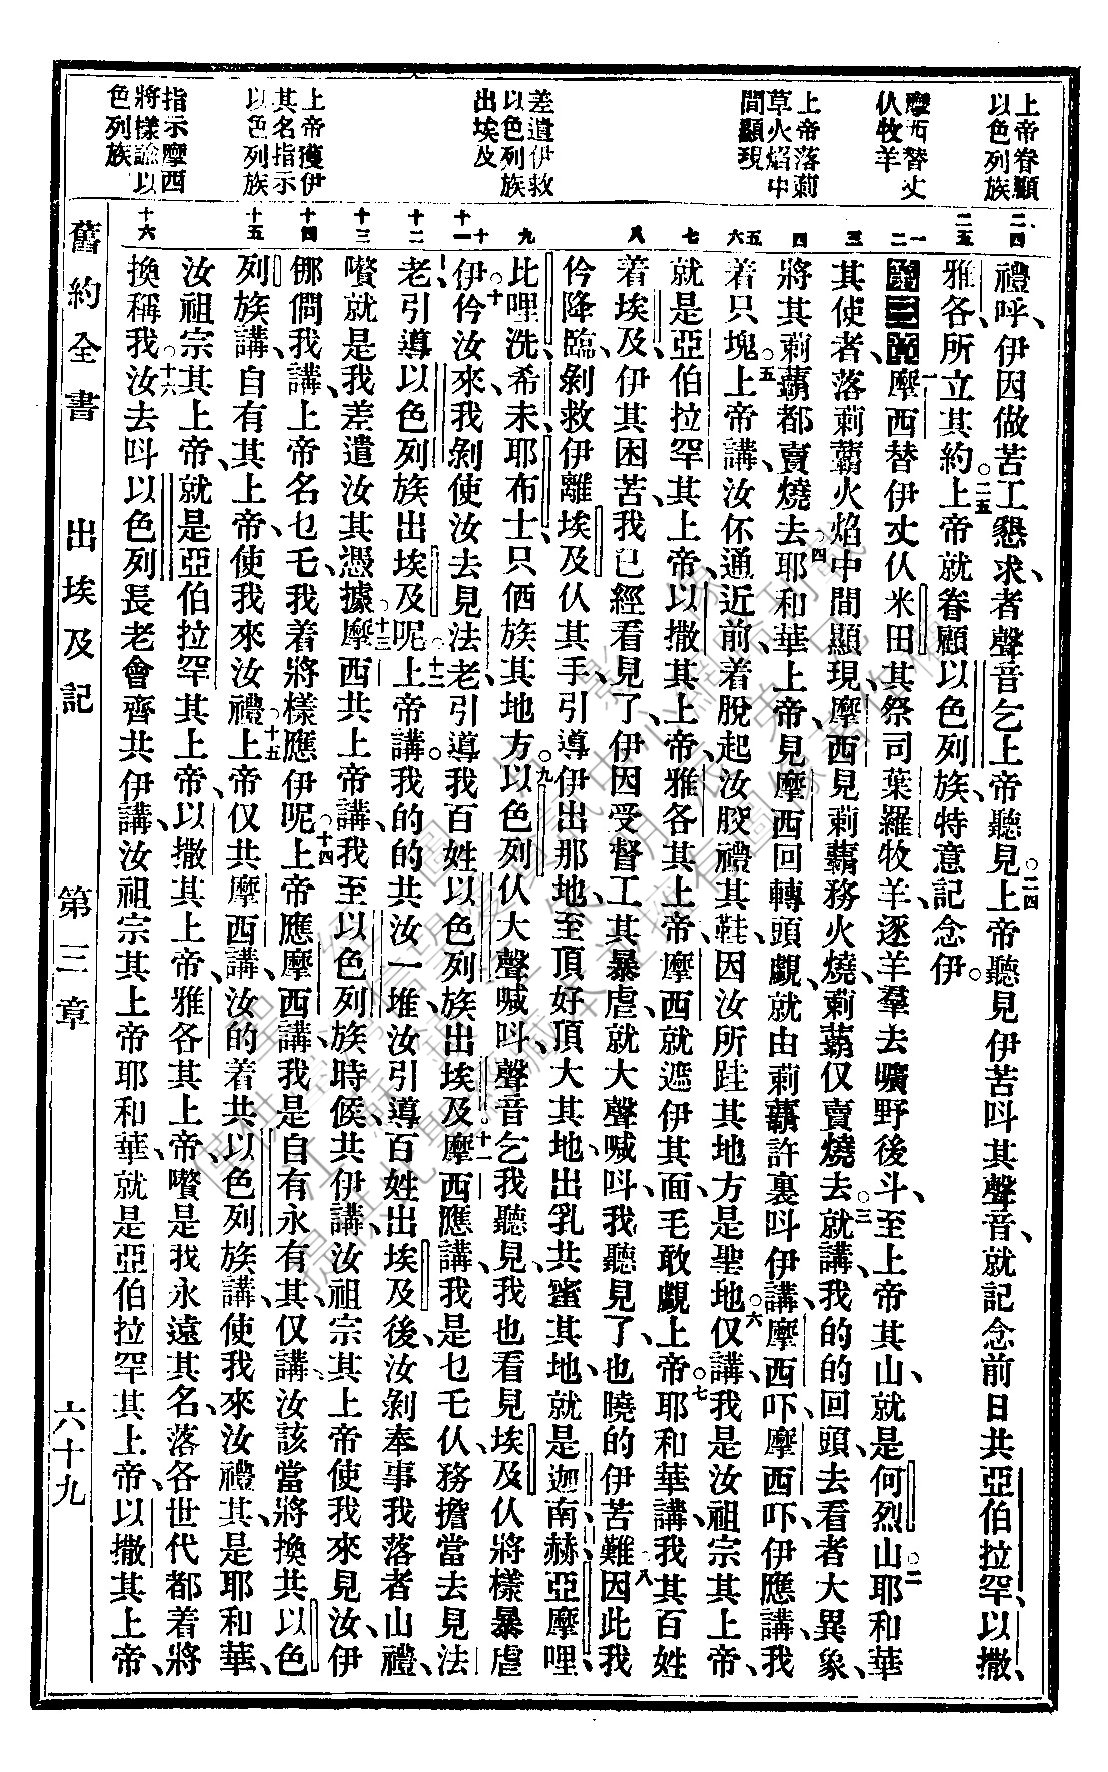 上帝眷顧
以色列族
摩西替丈
仈牧羊
上帝落莿
草火焰中
間顯現
差遣伊救
以色列族
出埃及
上帝獲伊
其名指示
以色列族
指示摩西
將樣諭以
色列族
禮呼、伊因做苦工懇求者聲音乞上帝聽見。二四上帝聽見伊苦呌其聲音、就記念前日共亞伯拉罕、以撒、
雅各所立其約。二五上帝就眷顧以色列族、特意記念伊。
第三章 一摩西替伊丈仈米田其祭司葉羅牧羊、逐羊羣去曠野後斗、至上帝其山、就是何烈山。二耶和華
其使者、落莿蘜火焰中間顯現、摩西見莿蘜務火燒、莿蘜仅賣燒去。三就講、我的的回頭去看者大異象、
將其莿蘜都賣燒去。四耶和華上帝見摩西回轉頭覷、就由莿蘜許裏呌伊講、摩西吓、摩西吓、伊應講、我
着只塊。五上帝講、汝伓通近前、着脫起汝骹禮其鞋、因汝所跬其地方是聖地。六仅講、我是汝祖宗其上帝、
就是亞伯拉罕其上帝、以撒其上帝、雅各其上帝、摩西就遮伊其面、毛敢覷上帝。七耶和華講、我其百姓
着埃及、伊其困苦、我已經看見了、伊因受督工其暴虐、就大聲喊呌、我聽見了、也曉的伊苦難。八因此我
仱降臨、剝救伊離埃及仈其手、引導伊出那地、至頂好頂大其地、出乳共蜜其地、就是迦南、赫、亞摩哩、
比哩洗、希未、耶布士、只伵族其地方。九以色列仈大聲喊呌、聲音乞我聽見、我也看見埃及仈將樣暴虐
伊。十仱汝來、我剝使汝去見法老、引導我百姓以色列族出埃及。十一摩西應講、我是乜乇仈、務擔當去見法
老、引導以色列族出埃及呢。十二上帝講、我的的共汝一堆、汝引導百姓出埃及後、汝剝奉事我落者山禮、
嚽就是我差遣汝其憑據。十三摩西共上帝講、我至以色列族時候、共伊講、汝祖宗其上帝使我來見汝、伊
倻僩我講、上帝名乜乇、我着將樣應伊呢。十四上帝應摩西講、我是自有永有其、仅講、汝該當將換共以色
列族講、自有其上帝、使我來汝禮。十五上帝仅共摩西講、汝的着共以色列族講、使我來汝禮其、是耶和華、
汝祖宗其上帝、就是亞伯拉罕其上帝、以撒其上帝、雅各其上帝、嚽是我永遠其名、落各世代都着將
換稱我。十六汝去呌以色列長老會齊、共伊講、汝祖宗其上帝耶和華、就是亞伯拉罕其上帝、以撒其上帝、
舊約全書 出埃及記 第三章 六十九